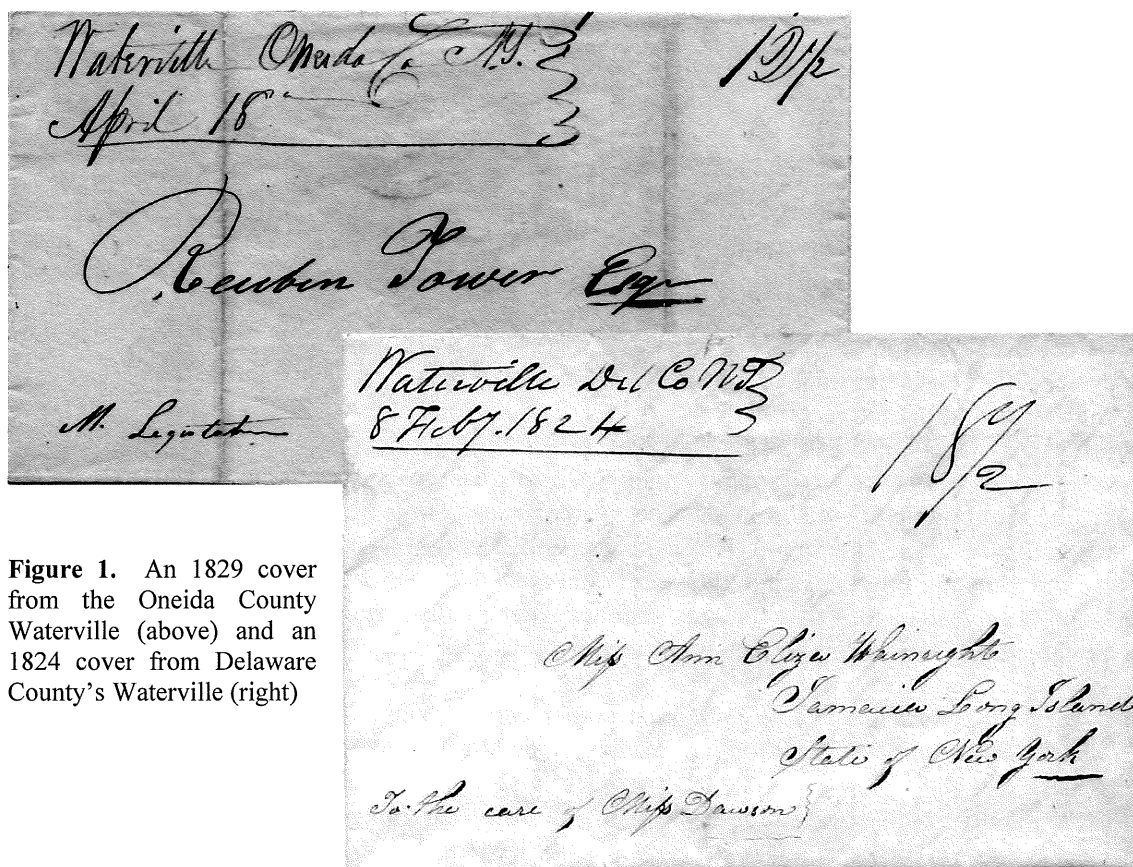 Waterville Oneida Co N.Y.
April 18
Reuben Tower Esqr
Waterville Del Co NY
8 Feby. 1824
18 1/2
Miss Ann Eliza Wainright
Jamaica Long Island
State of New York
To the care of Miss Dawson
Figure 1. An 1829 cover
from the Oneida County
Waterville (above) and an
1824 cover from Delaware
County's Waterville (right)